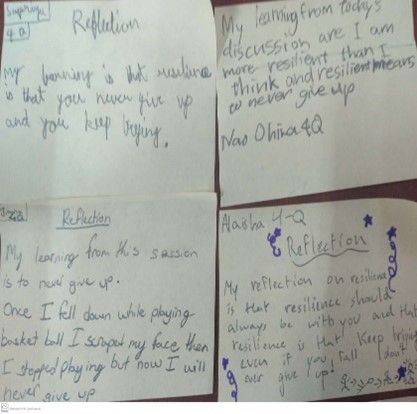 Supriya
4 Q
Reflection
My learning is that resilience
is that you never give up
and you keep trying.
My learning from today's
discussion are I am
more resilient than I
think and resilient means
to never give up
Nao Ohira 4Q
Reflection
My learning from this session
is to never give up.
Once I fell down while playing
basket ball I scraped my face then
I stopped playing but now I will
never give up
Alaisha 4-Q
Reflection
My reflection on resilience
is that resilience should
always be with you and that
resilience is that Keep trying
even if you fall don't
ever give up!